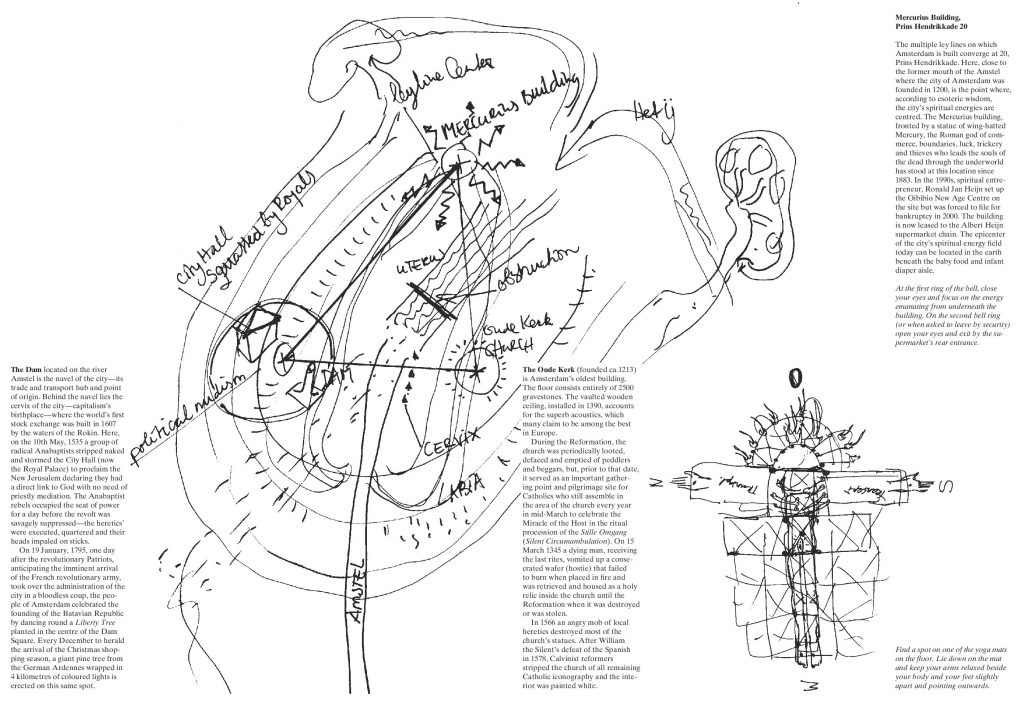 Leyline Centre
MERCURIUS BUILDING
Het ij
City Hall
Squatted by Royals
UTERUS
obstruction
Oude Kerk
CHURCH
political nudism
CERVIX
LABIA
AMSTEL
The Dam located on the river
Amstel is the navel of the city—its
trade and transport hub and point
of origin. Behind the navel lies the
cervix of the city—capitalism's
birthplace—where the world's first
stock exchange was built in 1607
by the waters of the Rokin. Here,
on the 10th May, 1535 a group of
radical Anabaptists stripped naked
and stormed the City Hall (now
the Royal Palace) to proclaim the
New Jerusalem declaring they had
a direct link to God with no need of
priestly mediation. The Anabaptist
rebels occupied the seat of power
for a day before the revolt was
savagely suppressed—the heretics'
were executed, quartered and their
heads impaled on sticks.
On 19 January, 1795, one day
after the revolutionary Patriots,
anticipating the imminent arrival
of the French revolutionary army,
took over the administration of the
city in a bloodless coup, the peo-
ple of Amsterdam celebrated the
founding of the Batavian Republic
by dancing round a Liberty Tree
planted in the centre of the Dam
Square. Every December to herald
the arrival of the Christmas shop-
ping season, a giant pine tree from
the German Ardennes wrapped in
4 kilometres of coloured lights is
erected on this same spot.
The Oude Kerk (founded ca.1213)
is Amsterdam's oldest building.
The floor consists entirely of 2500
gravestones. The vaulted wooden
ceiling, installed in 1390, accounts
for the superb acoustics, which
many claim to be among the best
in Europe.
During the Reformation, the
church was periodically looted,
defaced and emptied of peddlers
and beggars, but, prior to that date,
it served as an important gather-
ing point and pilgrimage site for
Catholics who still assemble in
the area of the church every year
in mid-March to celebrate the
Miracle of the Host in the ritual
procession of the Stille Omgang
(Silent Circumambulation). On 15
March 1345 a dying man, receiving
the last rites, vomited up a conse-
crated wafer (hostie) that failed
to burn when placed in fire and
was retrieved and housed as a holy
relic inside the church until the
Reformation when it was destroyed
or was stolen.
In 1566 an angry mob of local
heretics destroyed most of the
church's statues. After William
the Silent's defeat of the Spanish
in 1578, Calvinist reformers
stripped the church of all remaining
Catholic iconography and the inte-
rior was painted white.
O
N
Transept
Transept
S
W
Mercurius Building,
Prins Hendrikkade 20
The multiple ley lines on which
Amsterdam is built converge at 20,
Prins Hendrikkade. Here, close to
the former mouth of the Amstel
where the city of Amsterdam was
founded in 1200, is the point where,
according to esoteric wisdom,
the city's spiritual energies are
centred. The Mercurius building,
fronted by a statue of wing-hatted
Mercury, the Roman god of com-
merce, boundaries, luck, trickery
and thieves who leads the souls of
the dead through the underworld
has stood at this location since
1883. In the 1990s, spiritual entre-
preneur, Ronald Jan Heijn set up
the Oibibio New Age Centre on
the site but was forced to file for
bankruptcy in 2000. The building
is now leased to the Albert Heijn
supermarket chain. The epicenter
of the city's spiritual energy field
today can be located in the earth
beneath the baby food and infant
diaper aisle.
At the first ring of the bell, close
your eyes and focus on the energy
emanating from underneath the
building. On the second bell ring
(or when asked to leave by security)
open your eyes and exit by the su-
permarket's rear entrance.
Find a spot on one of the yoga mats
on the floor. Lie down on the mat
and keep your arms relaxed beside
your body and your feet slightly
apart and pointing outwards.